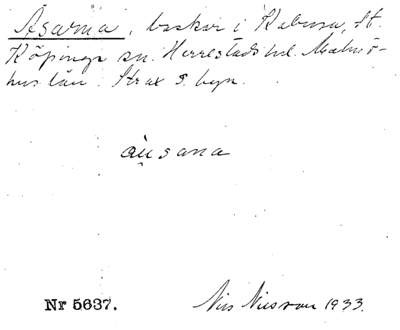 Åsarna, backar i Kabusa, St.
Köpinge sn. Herrestads hd. Malmö-
hus län. Strax S. byn.
ɑ̀u̯sana
Nr 5637.
Nils Nilsson 1933.